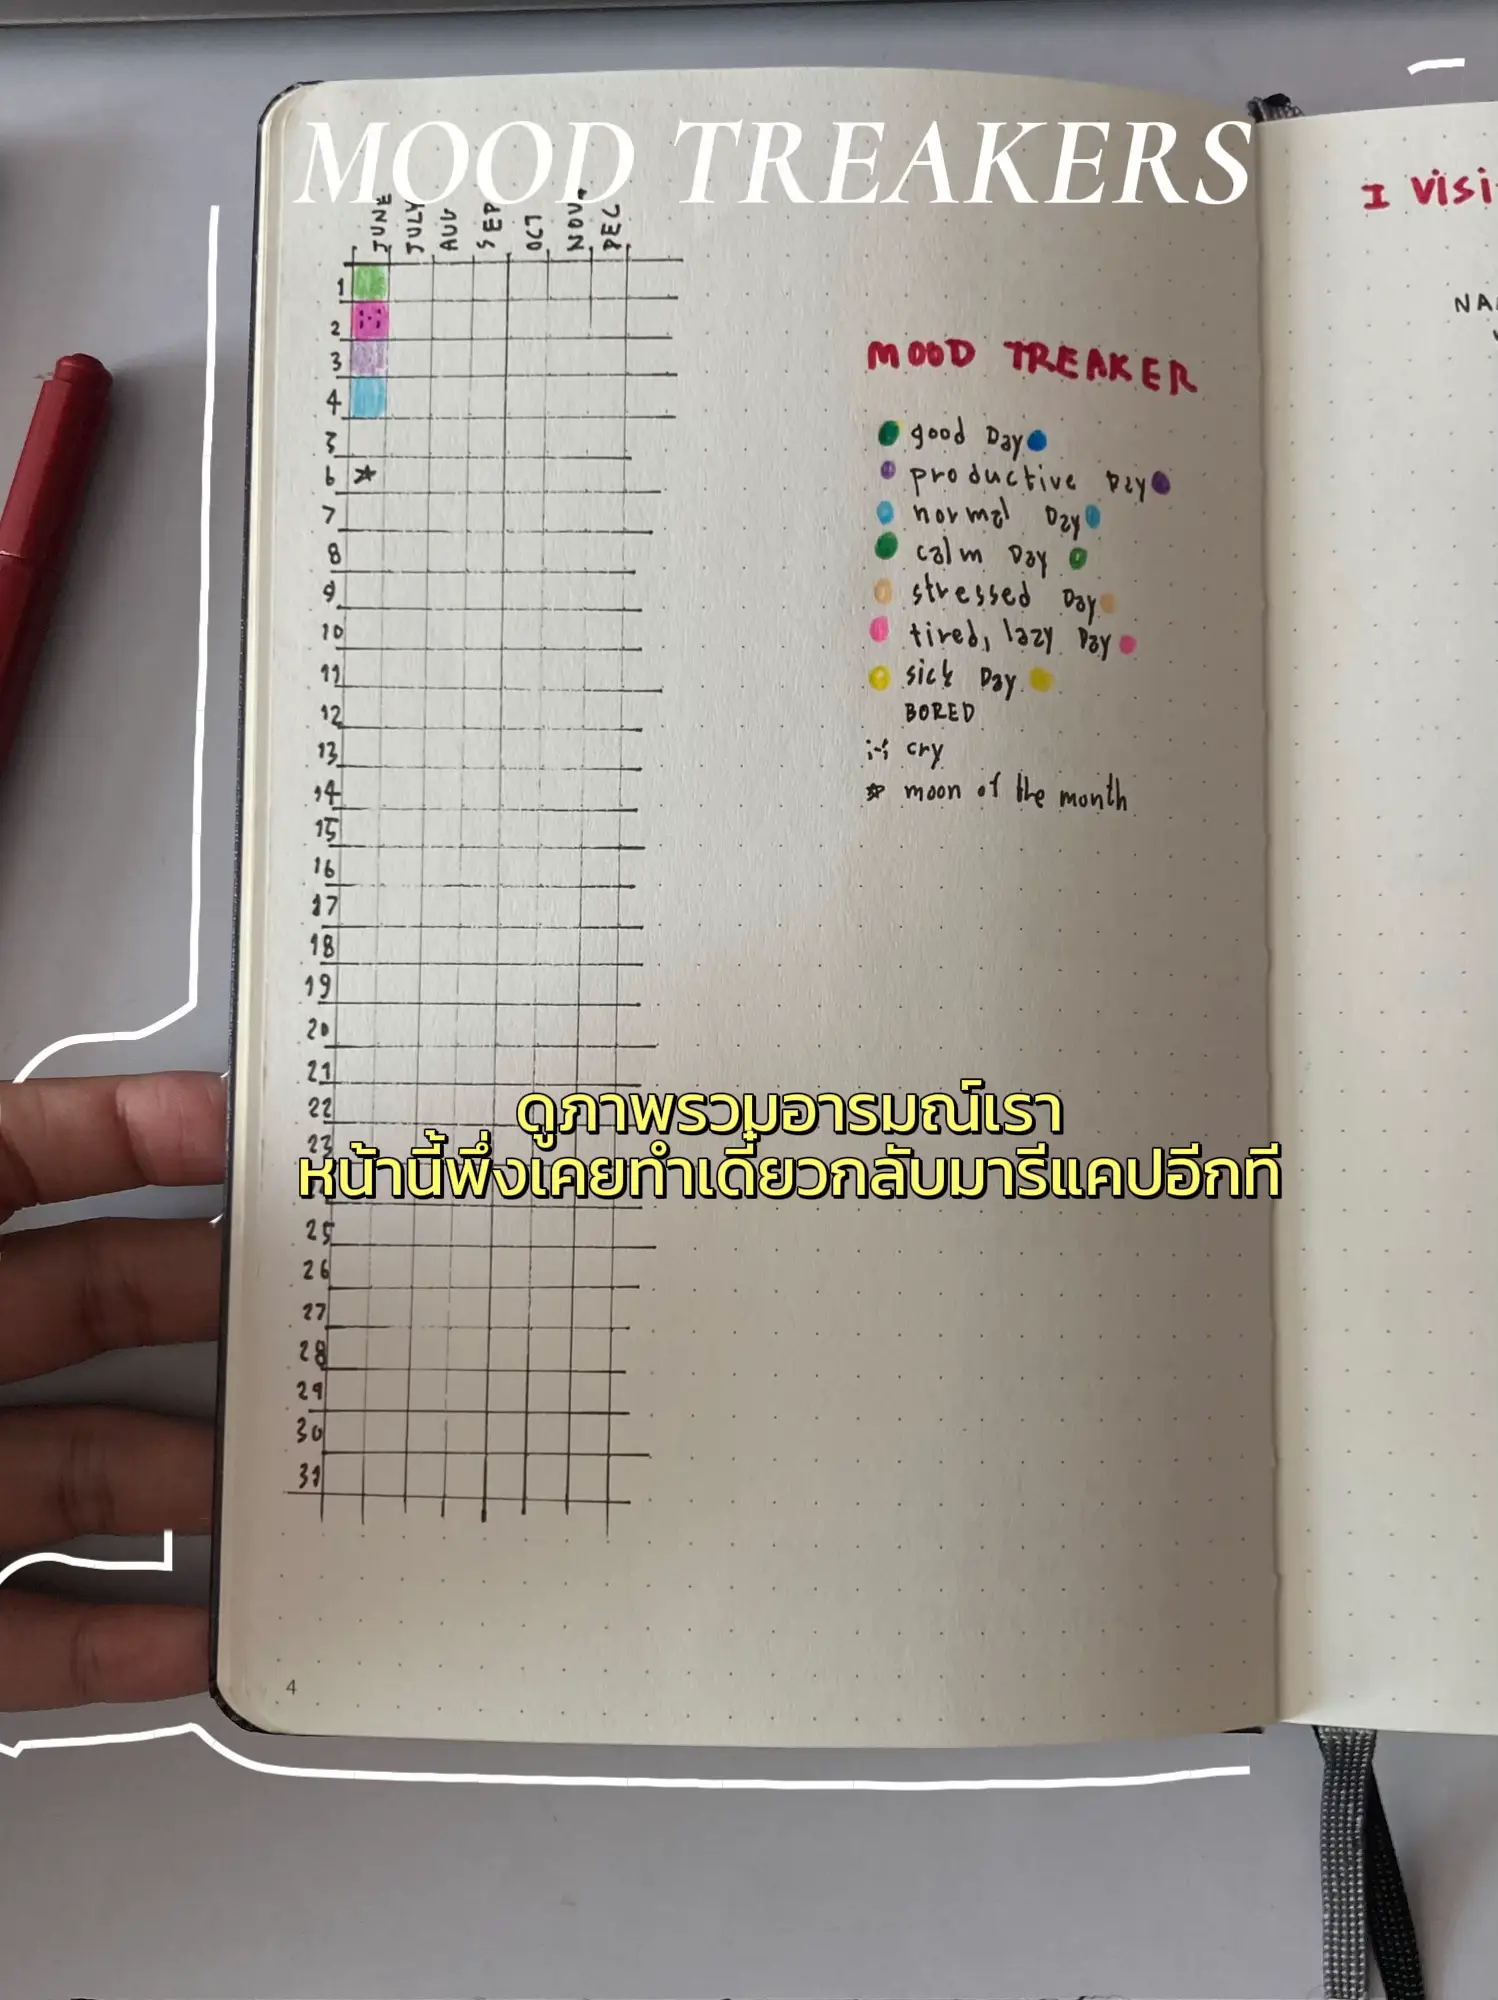 MOOD TREAKERS
JUNE JULY AUG SEP OCT NOV. DEC
1
2
3
4
5
6
7
8
9
10
11
12
13
14
15
16
17
18
19
20
21
22
23
25
26
27
28
29
30
31
MOOD TREAKER
good Day
productive Day
normal Day
calm Day
stressed Day
tired, lazy Day
sick Day
BORED
cry
moon of the month
ดูภาพรวมอารมณ์เรา
หน้านี้พึ่งเคยทำเดี๋ยวกลับมารีแคปอีกที
4
I Visi
NA